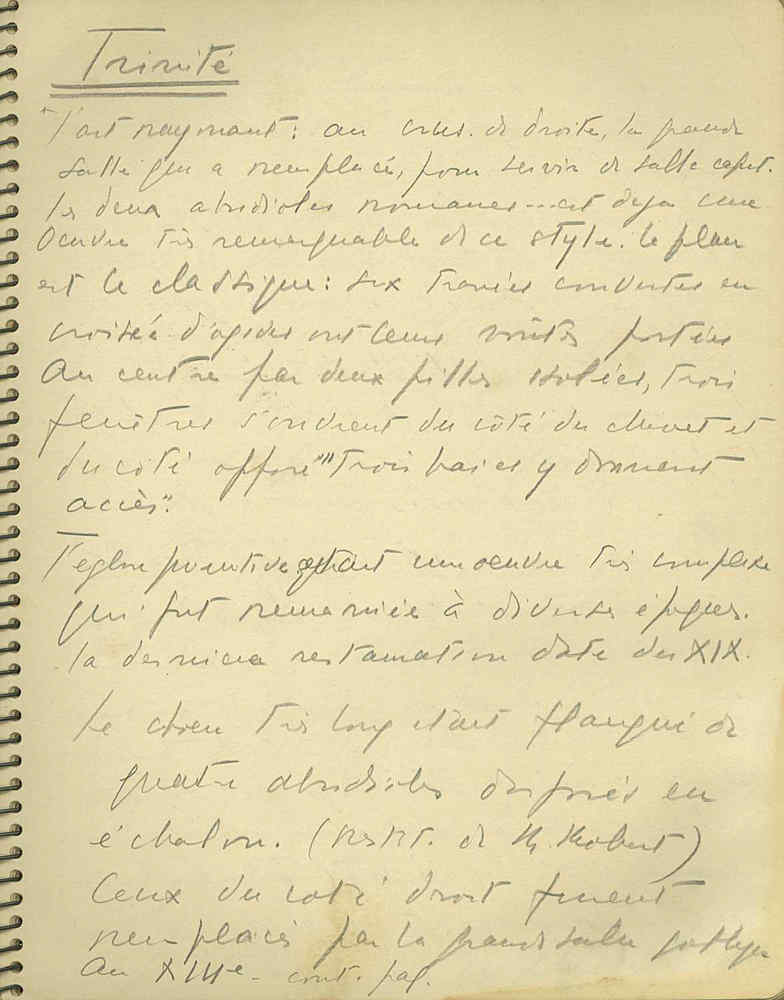 Trinité
"L'art rayonnant: au crois. de droite, la grande
salle qui a remplacé, pour servir de salle capit.
les deux absidioles romanes -- est déjà une
oeuvre très remarquable de ce style. Le plan
est le classique: six travées couvertes en
croisée d'ogives ont leurs voûtes portées
au centre par deux piles isolées, trois
fenêtres s'ouvrent du côté du chevet et
du côté opposé "" trois baies y donnent
accès".
L'église primitive était une oeuvre très complexe
qui fut remaniée à diverses époques.
La dernière restauration date du XIX.
Le choeur très long était flanqué de
quatre absidioles disposés en
échelon. (restit. de
Ceux du coté droit furent
remplacés par la grande salle gothique
au XIIIe - cont. pag.